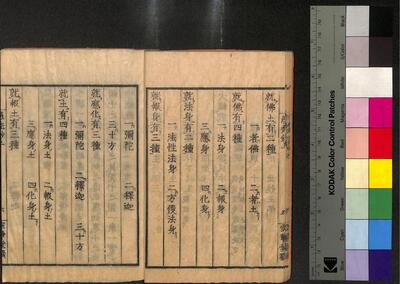 就佛土有二種
一者佛 二者土
就佛有四種
一法身 二報身
三應身 四化身
就法身有二種
一法性法身 二方便法身
就報身有三種
一彌陀 二釋迦
三十方
就應化有三種
一彌陀 二釋迦 三十方
就土有四種
一法身土 二報身土
三應身土 四化身土
就報土有三種
KODAK Color Control Patches
Black
3/Color
White
Magenta
Red
Yellow
Green
Cyan
Blue